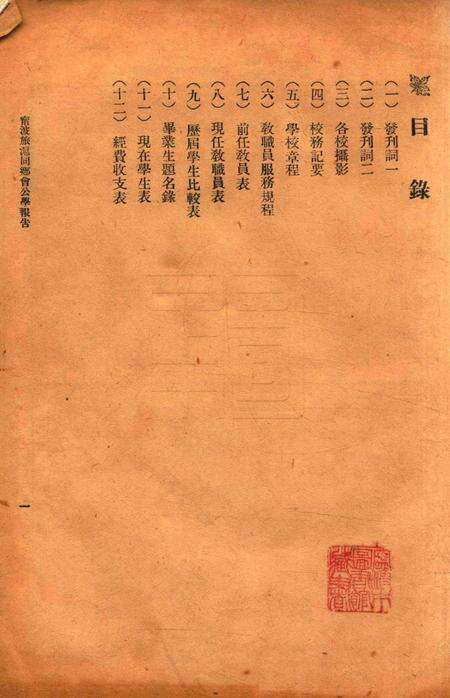 目錄
（一）發刊詞一
（二）發刊詞二
（三）各校攝影
（四）校務記要
（五）學校章程
（六）敎職員服務規程
（七）前任敎員表
（八）現任敎職員表
（九）歷屆學生比較表
（十）畢業生題名錄
（十一）現在學生表
（十二）經費收支表
甯波旅滬同鄉會公學報告
一